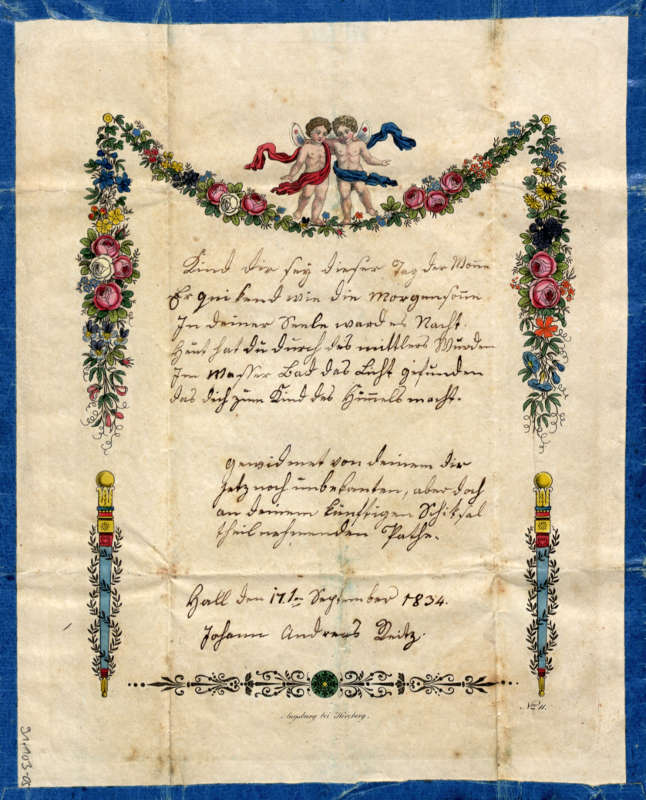 Kind dir sey dieser Tag der Wonne
Erquikend wie die Morgensonne
In deiner Seele ward es Nacht.
Heut hat du durch des mittlers Wunden
Im Wasser Bad das Licht gefunden
das dich zum Kind des Himels macht.
gewidmet von deinem dir
jetz noch unbekanten, aber doch
an deinem künftigen Schiksal
theilnehmenden Pathe.
Hall den 17ten September 1834.
Johann Andreas
Augsburg bei Herzberg.
No. 11.